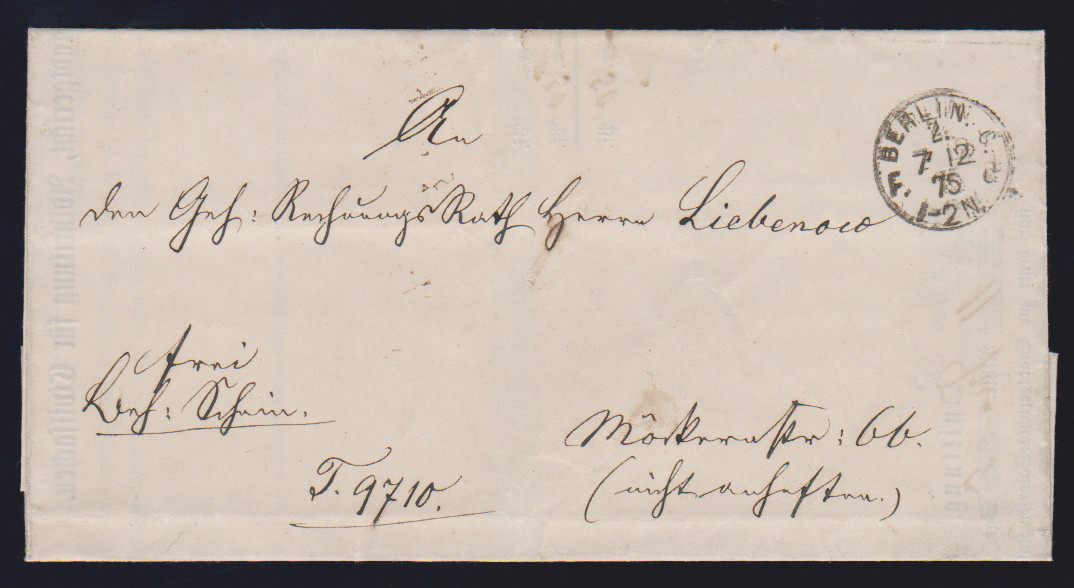 An
den Geh: Rechnungs Rath Herrn Liebenow
BERLIN.
7 12
75
1-2N.
frei
Beh: Schein.
T. 9710.
Möckernstr: 66.
(nicht anheften.)